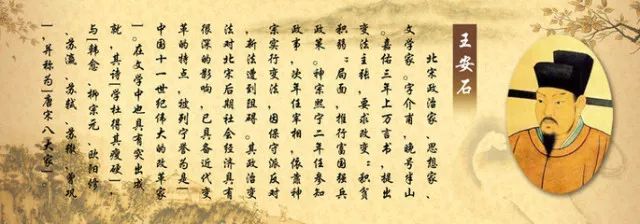 王安石
北宋政治家、思想家、
文学家。字介甫，晚号半山
。嘉佑三年上万言书，提出
变法主张，要求改变“积贫
积弱”局面，推行富国强兵
政策。神宗熙宁二年任参知
政事，次年任宰相，依靠神
宗实行变法，因保守派反对
，新法遭到阻碍。其政治变
法对北宋后期社会经济具有
很深的影响，已具备近代变
革的特点，被列宁誉为是“
中国十一世纪伟大的改革家
”。在文学中也具有突出成
就，其诗“学杜得其瘦硬”
与“韩愈、柳宗元、欧阳修
、苏瀛、苏轼、苏辙、曾巩
”，并称为“唐宋八大家”。